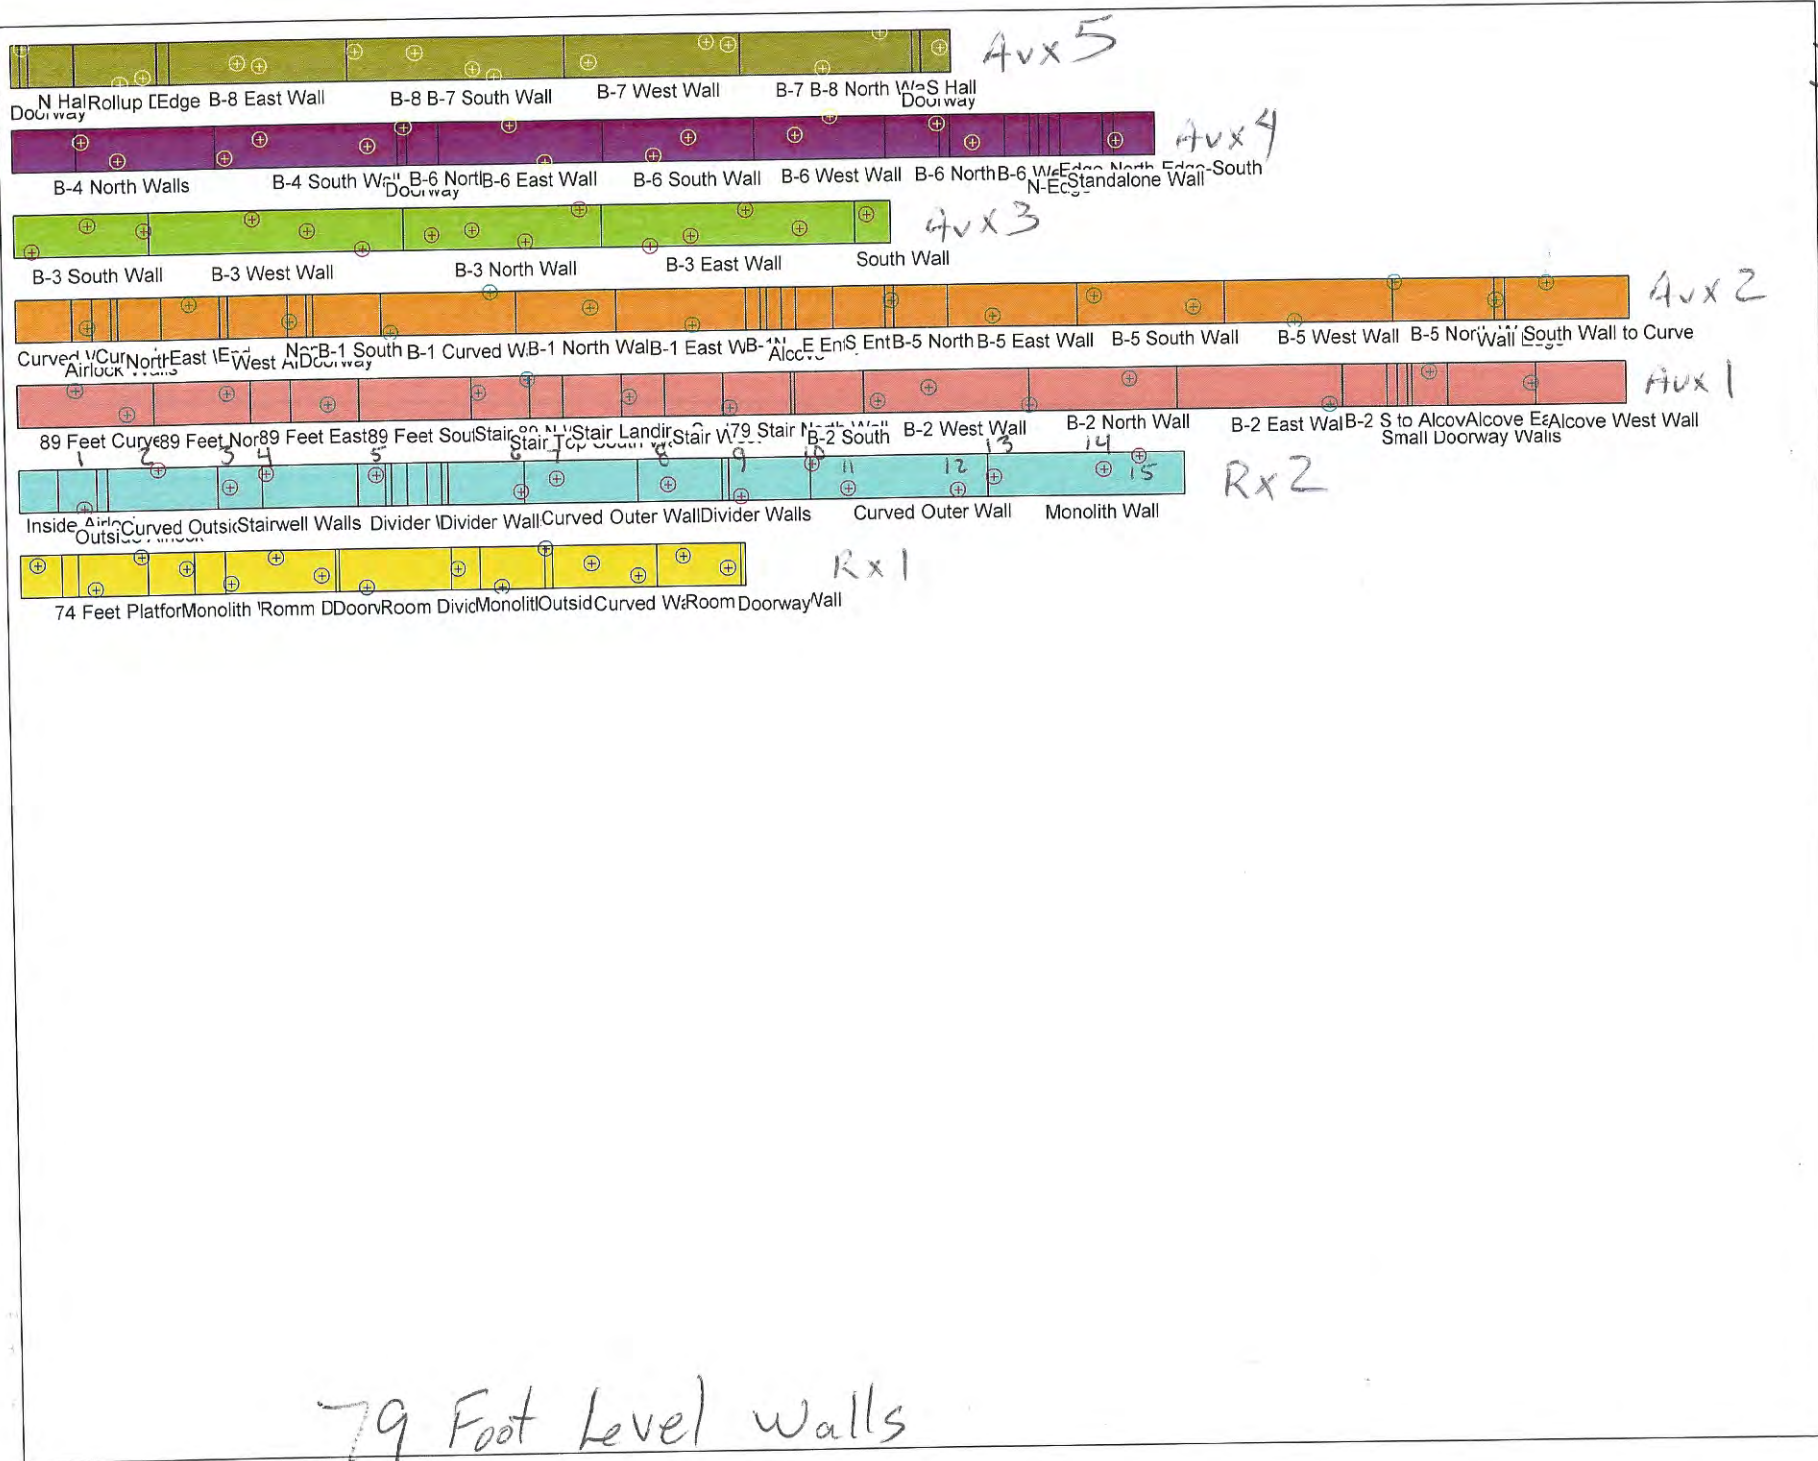 Avx 5
N Hal Rollup [ Edge B-8 East Wall B-8 B-7 South Wall B-7 West Wall B-7 B-8 North Wa S Hall
Doorway Doorway
Avx 4
B-4 North Walls B-4 South Wall B-6 North B-6 East Wall B-6 South Wall B-6 West Wall B-6 North B-6 Edge North Edge-South
Doorway Standalone Wall
Avx 3
B-3 South Wall B-3 West Wall B-3 North Wall B-3 East Wall South Wall
Avx 2
Curved Cur North East West B-1 South B-1 Curved W B-1 North Wal B-1 East W E En S Ent B-5 North B-5 East Wall B-5 South Wall B-5 West Wall B-5 Nor Wall South Wall to Curve
Airlock Walls Doorway
Aux 1
89 Feet Curve 89 Feet Nor 89 Feet East 89 Feet Sou Stair Stair Landin Stair W 79 Stair North Wall B-2 South B-2 West Wall B-2 North Wall B-2 East Wal B-2 S to Alcov Alcove Ea Alcove West Wall
Stair Top South Small Doorway Walls
1 2 3 4 5 6 7 8 9 10 11 12 13 14 15
Rx 2
Inside Airlo Curved Outsi Stairwell Walls Divider Divider Wall Curved Outer Wall Divider Walls Curved Outer Wall Monolith Wall
Outside Airlock
Rx 1
74 Feet Platfor Monolith Romm D Door Room Divid Monolit Outsid Curved Wa Room Doorway Wall
79 Foot Level Walls